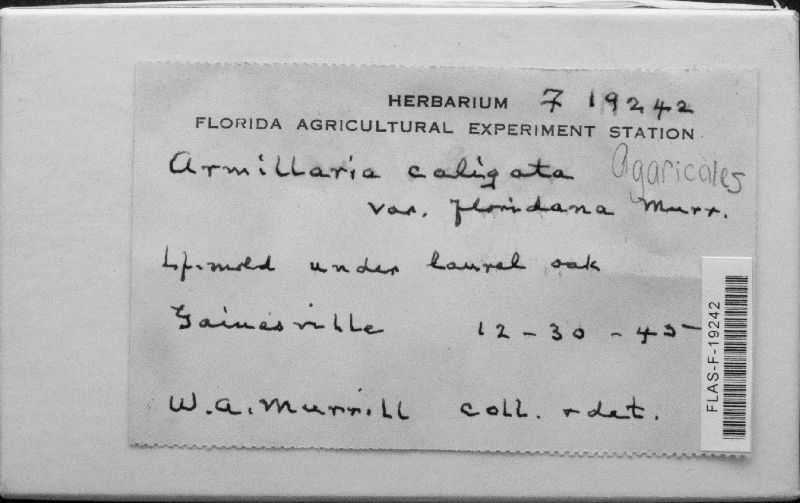 HERBARIUM F 19242
FLORIDA AGRICULTURAL EXPERIMENT STATION
Armillaria caligata Agaricales
var. floridana Murr.
Lf. mold under laurel oak
Gainesville 12-30-45
W. A. Murrill coll. + det.
FLAS-F-19242